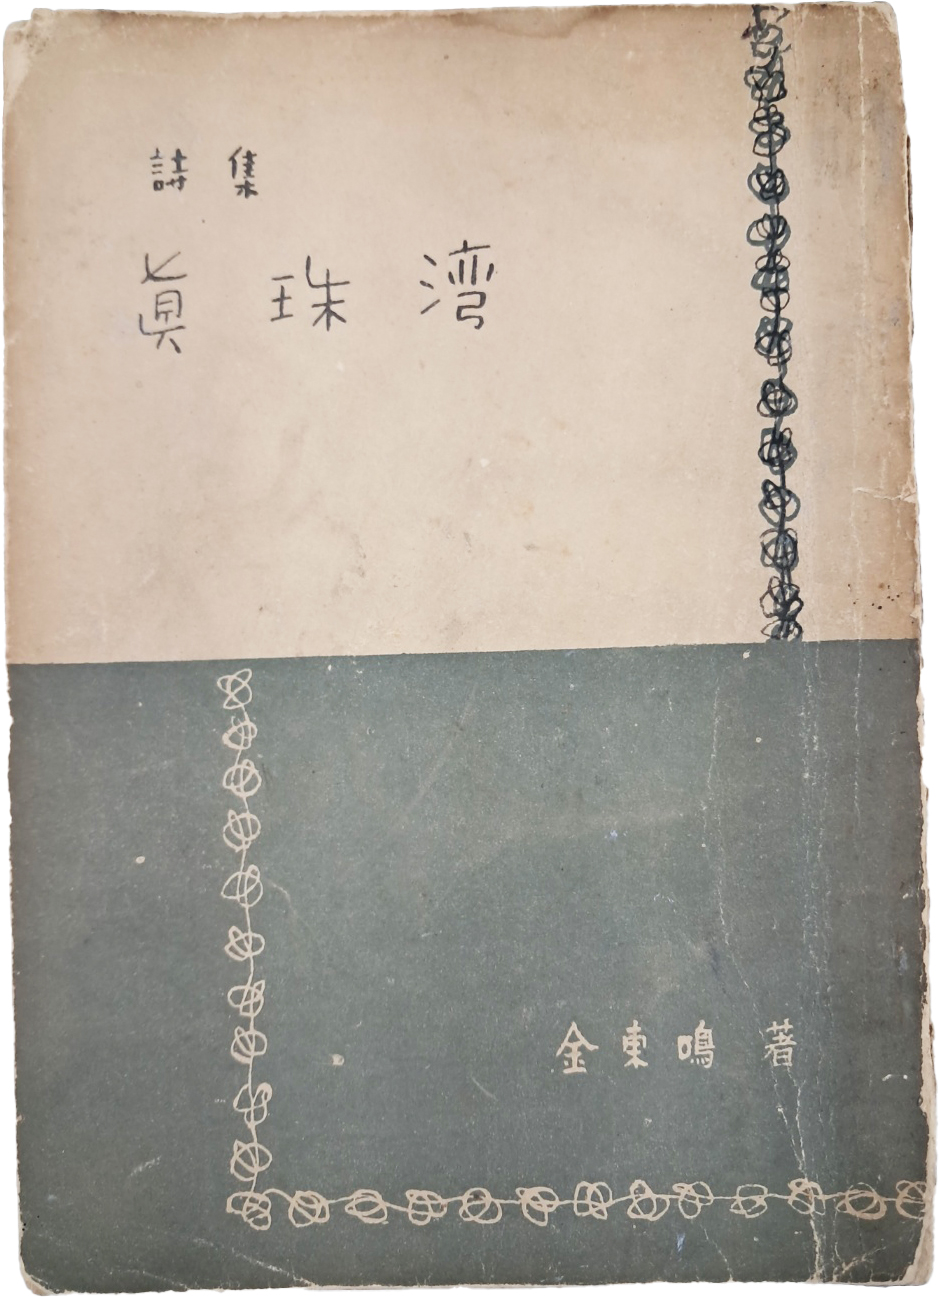 詩集
眞珠湾
金東鳴 著